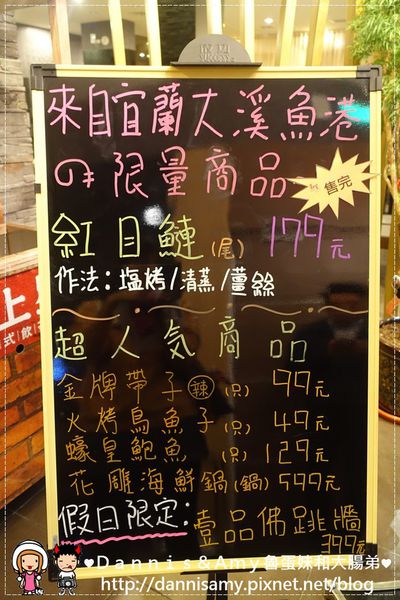 來自宜蘭大溪魚港
の限量商品
售完
紅目鰱(尾) 179元
作法:塩烤/清蒸/薑絲
超人気商品
金牌帶子辣(只) 99元
火烤烏魚子(只) 49元
蠔皇鮑魚(只) 129元
花雕海鮮鍋(鍋) 599元
假日限定:壹品佛跳牆
399元
♥Dannis&Amy魯蛋妹和大腸弟♥
http://dannisamy.pixnet.net/blog